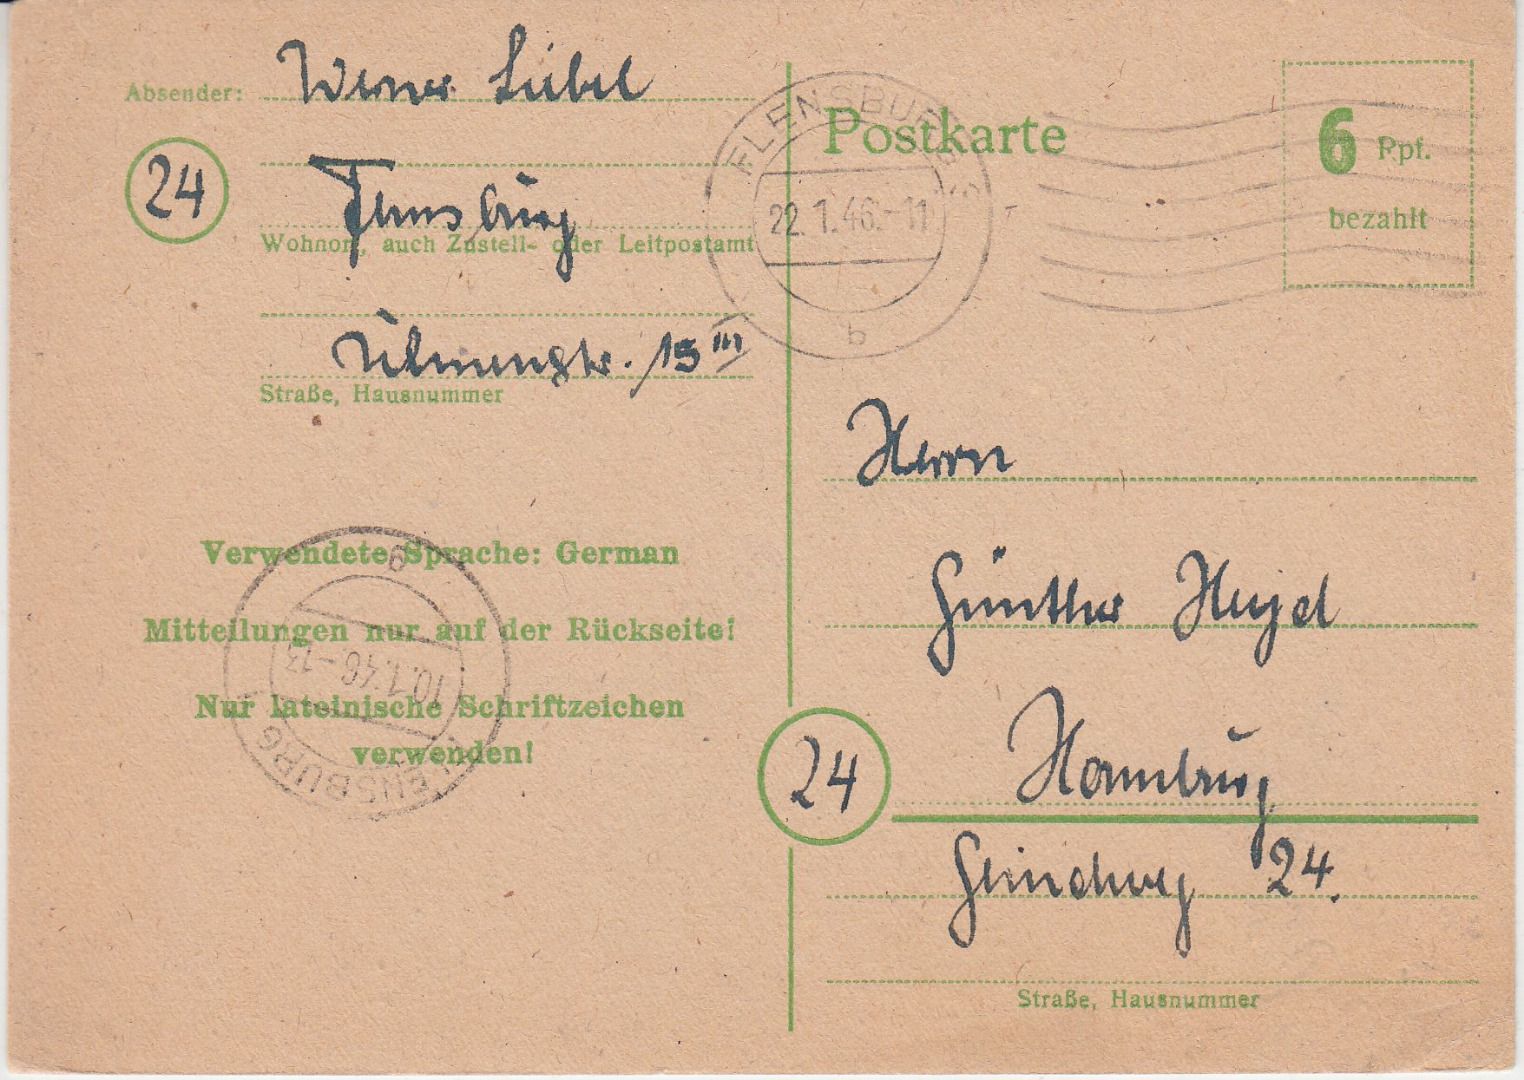 Absender: Werner Liebel
24
Flensburg
Wohnort, auch Zustell- oder Leitpostamt
Ulmenstr. 15 III
Straße, Hausnummer
Verwendete Sprache: German
Mitteilungen nur auf der Rückseite!
Nur lateinische Schriftzeichen
verwenden!
FLENSBURG
10.1.46.-13
b
FLENSBURG
22.1.46.-11
b
Postkarte
6 Rpf.
bezahlt
Herrn
Günther
24
Hamburg
24.
Straße, Hausnummer